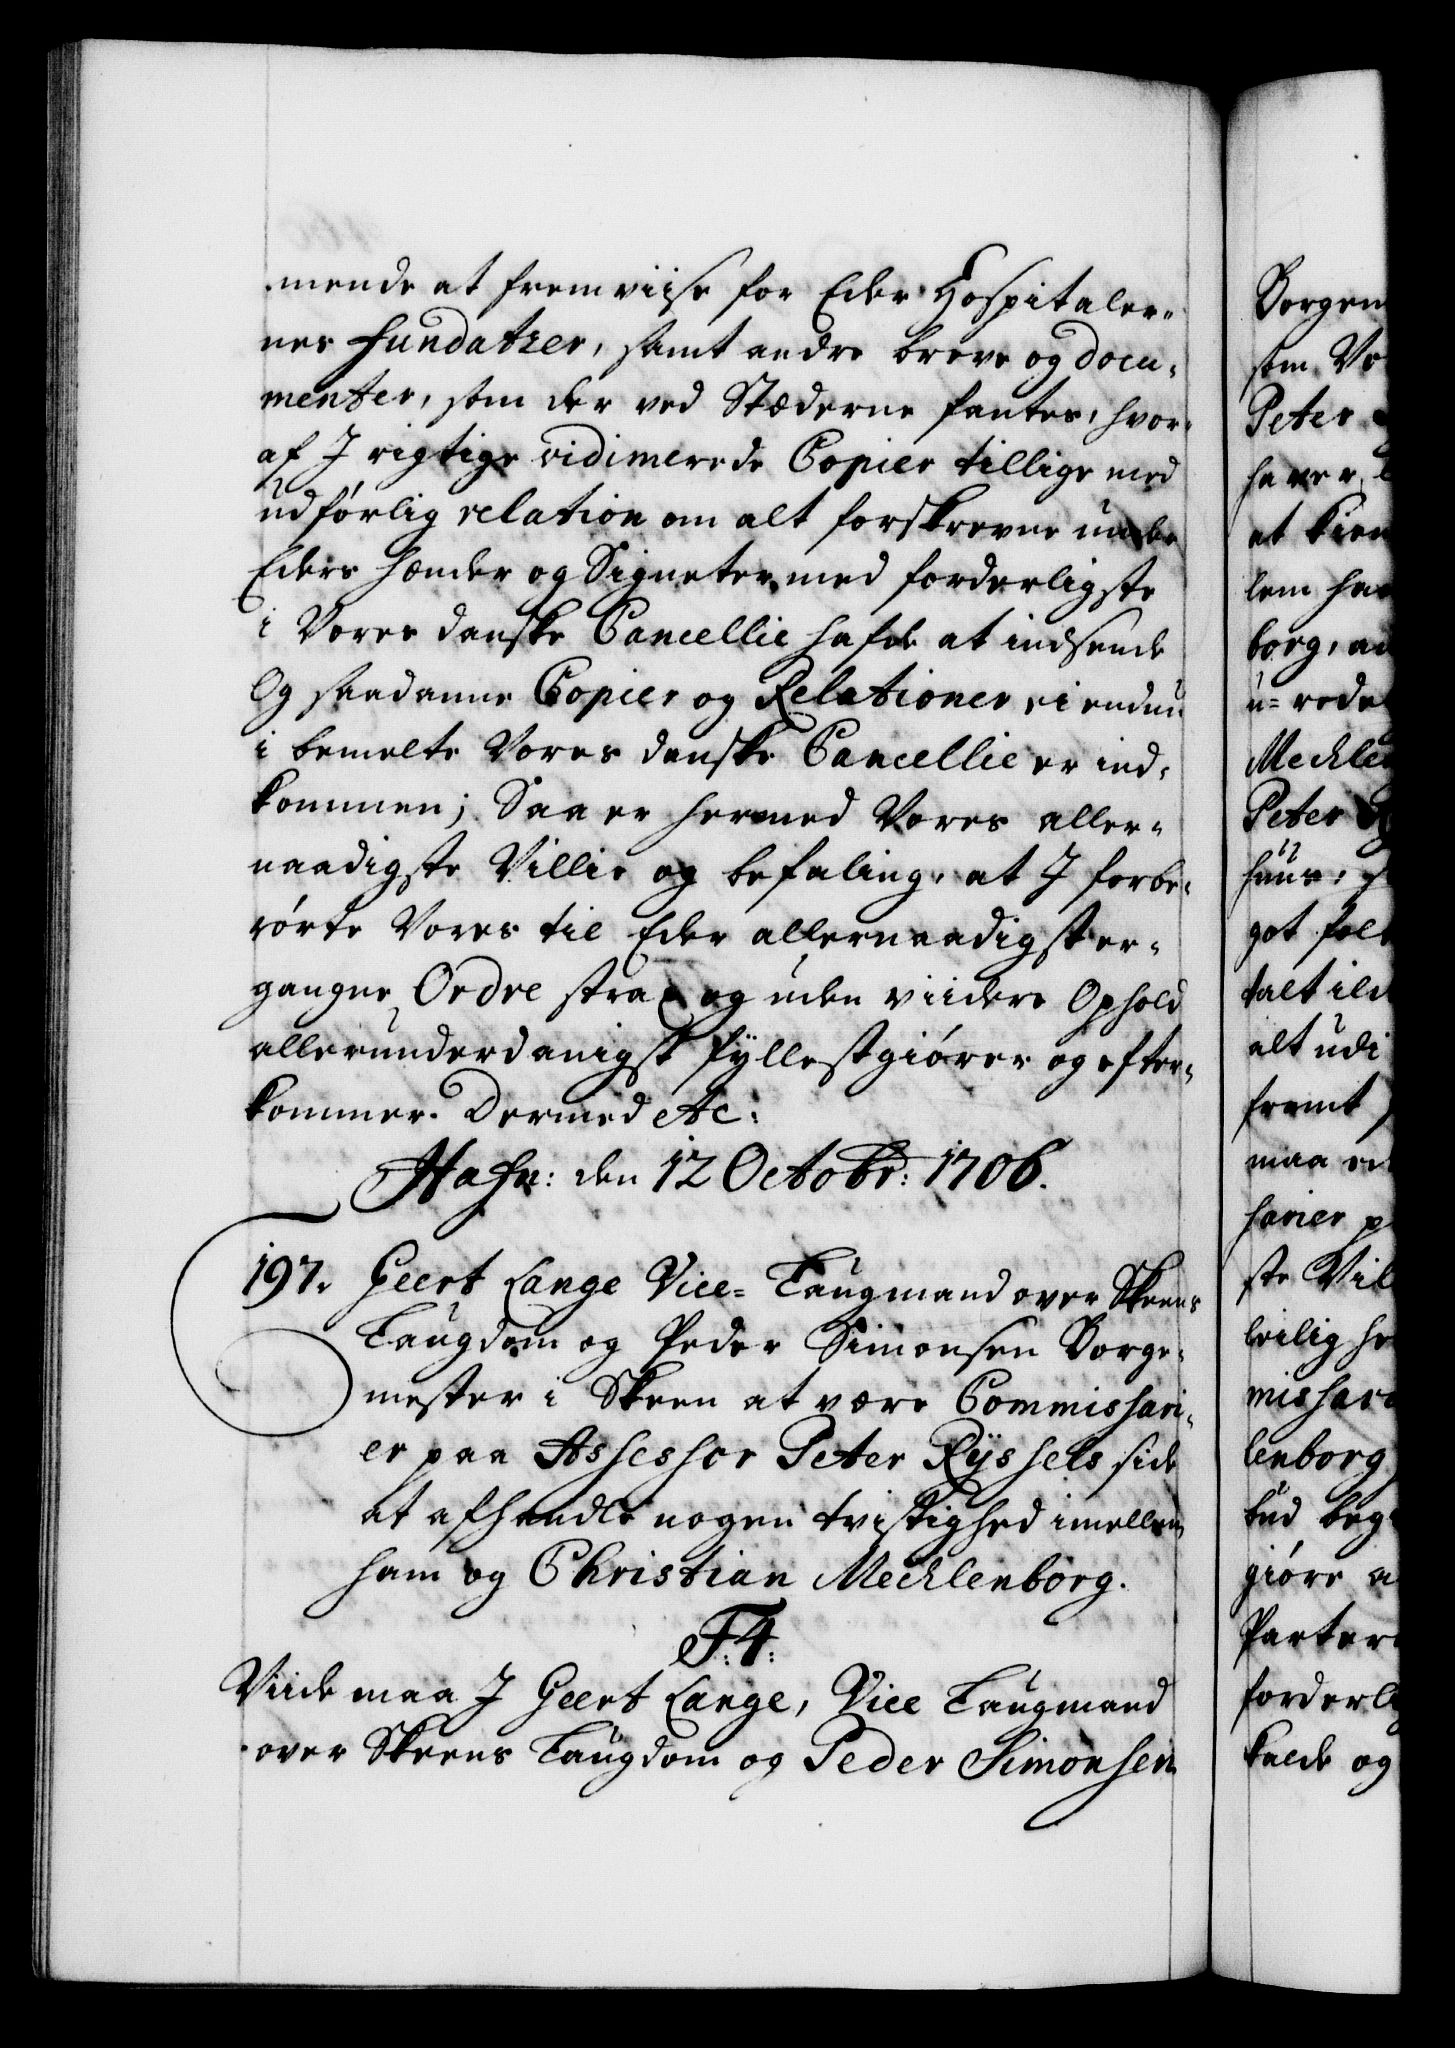 mende at fremviise for Eder Hospitaler-
nes Fundatzer, samt andre breve og docu-
menter, som der ved Stæderne fantes, hvor-
af J rigtige vidimerede Copier tillige med
udførlig relation om alt forskrevne under
Eders hænder og Signeter med forderligste
i Vores danske Cancellie hafde at indsende
Og saadanne Copier og Relationer ei endnu
i bemelte Vores danske Cancellie er ind-
kommen; Saa er hermed Vores aller-
naadigste Villie og befaling, at J forbe-
rørte Vores til Eder allernaadigst er-
gangne Ordre strax og uden viidere Ophold
allerunderdanigst fyllestgiører og efter-
kommer. Dermed etc:
Hafn: den 12 Octobr: 1706.
197. Geert Lange Vice- Laugmand over Skeens
Laugdom og Peder Simonsen Borge-
mester i Skeen at være Commissari-
er paa Assessor Peter Ryssels side
at afhandle nogen tvistighed imellem
ham og Christian Mecklenborg.
F: 4:
Viide maa J Geert Lange, Vice Laugmand
over Skeens Laugdom og Peder Simonsen
Borgem
som Vo
Peter
haver
at kien
lem ha
borg, an
u-rede
Mecklen
Peter
huus,
got fol
talt ild
alt udi
fremt
maa
sarier p
ste Vil
leilighe
missari
lenborg
bud beg
giøre a
Parter
forderli
kalde og